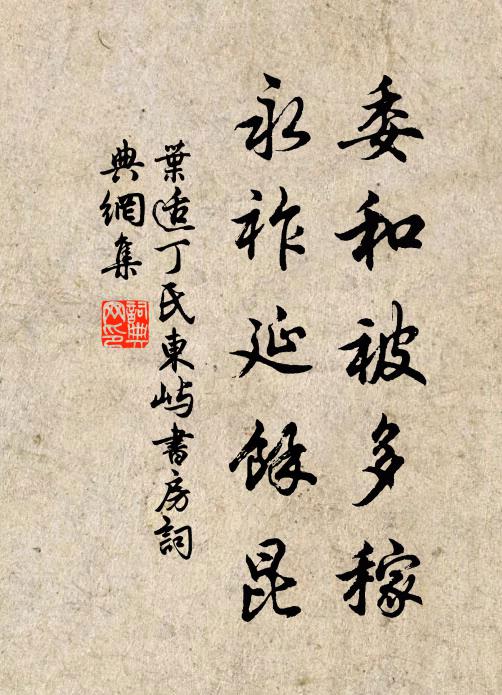 委和被多稼
永祚延餘昆
葉适丁氏東嶼書房詞
典網集
詞典
网印